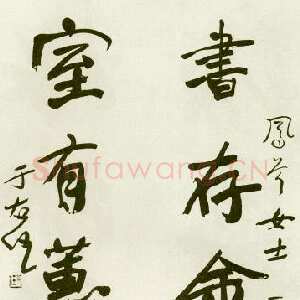 鳳岑女士
書存金
室有蕙
于右任
Shufawang.CN